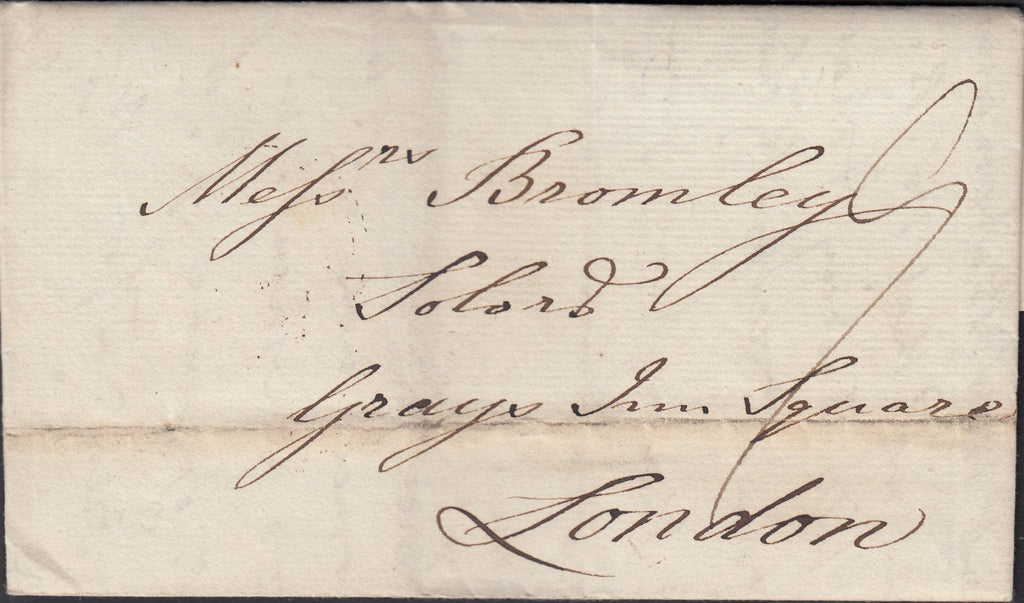 Messrs Bromley
Solors
Grays Inn Square
London